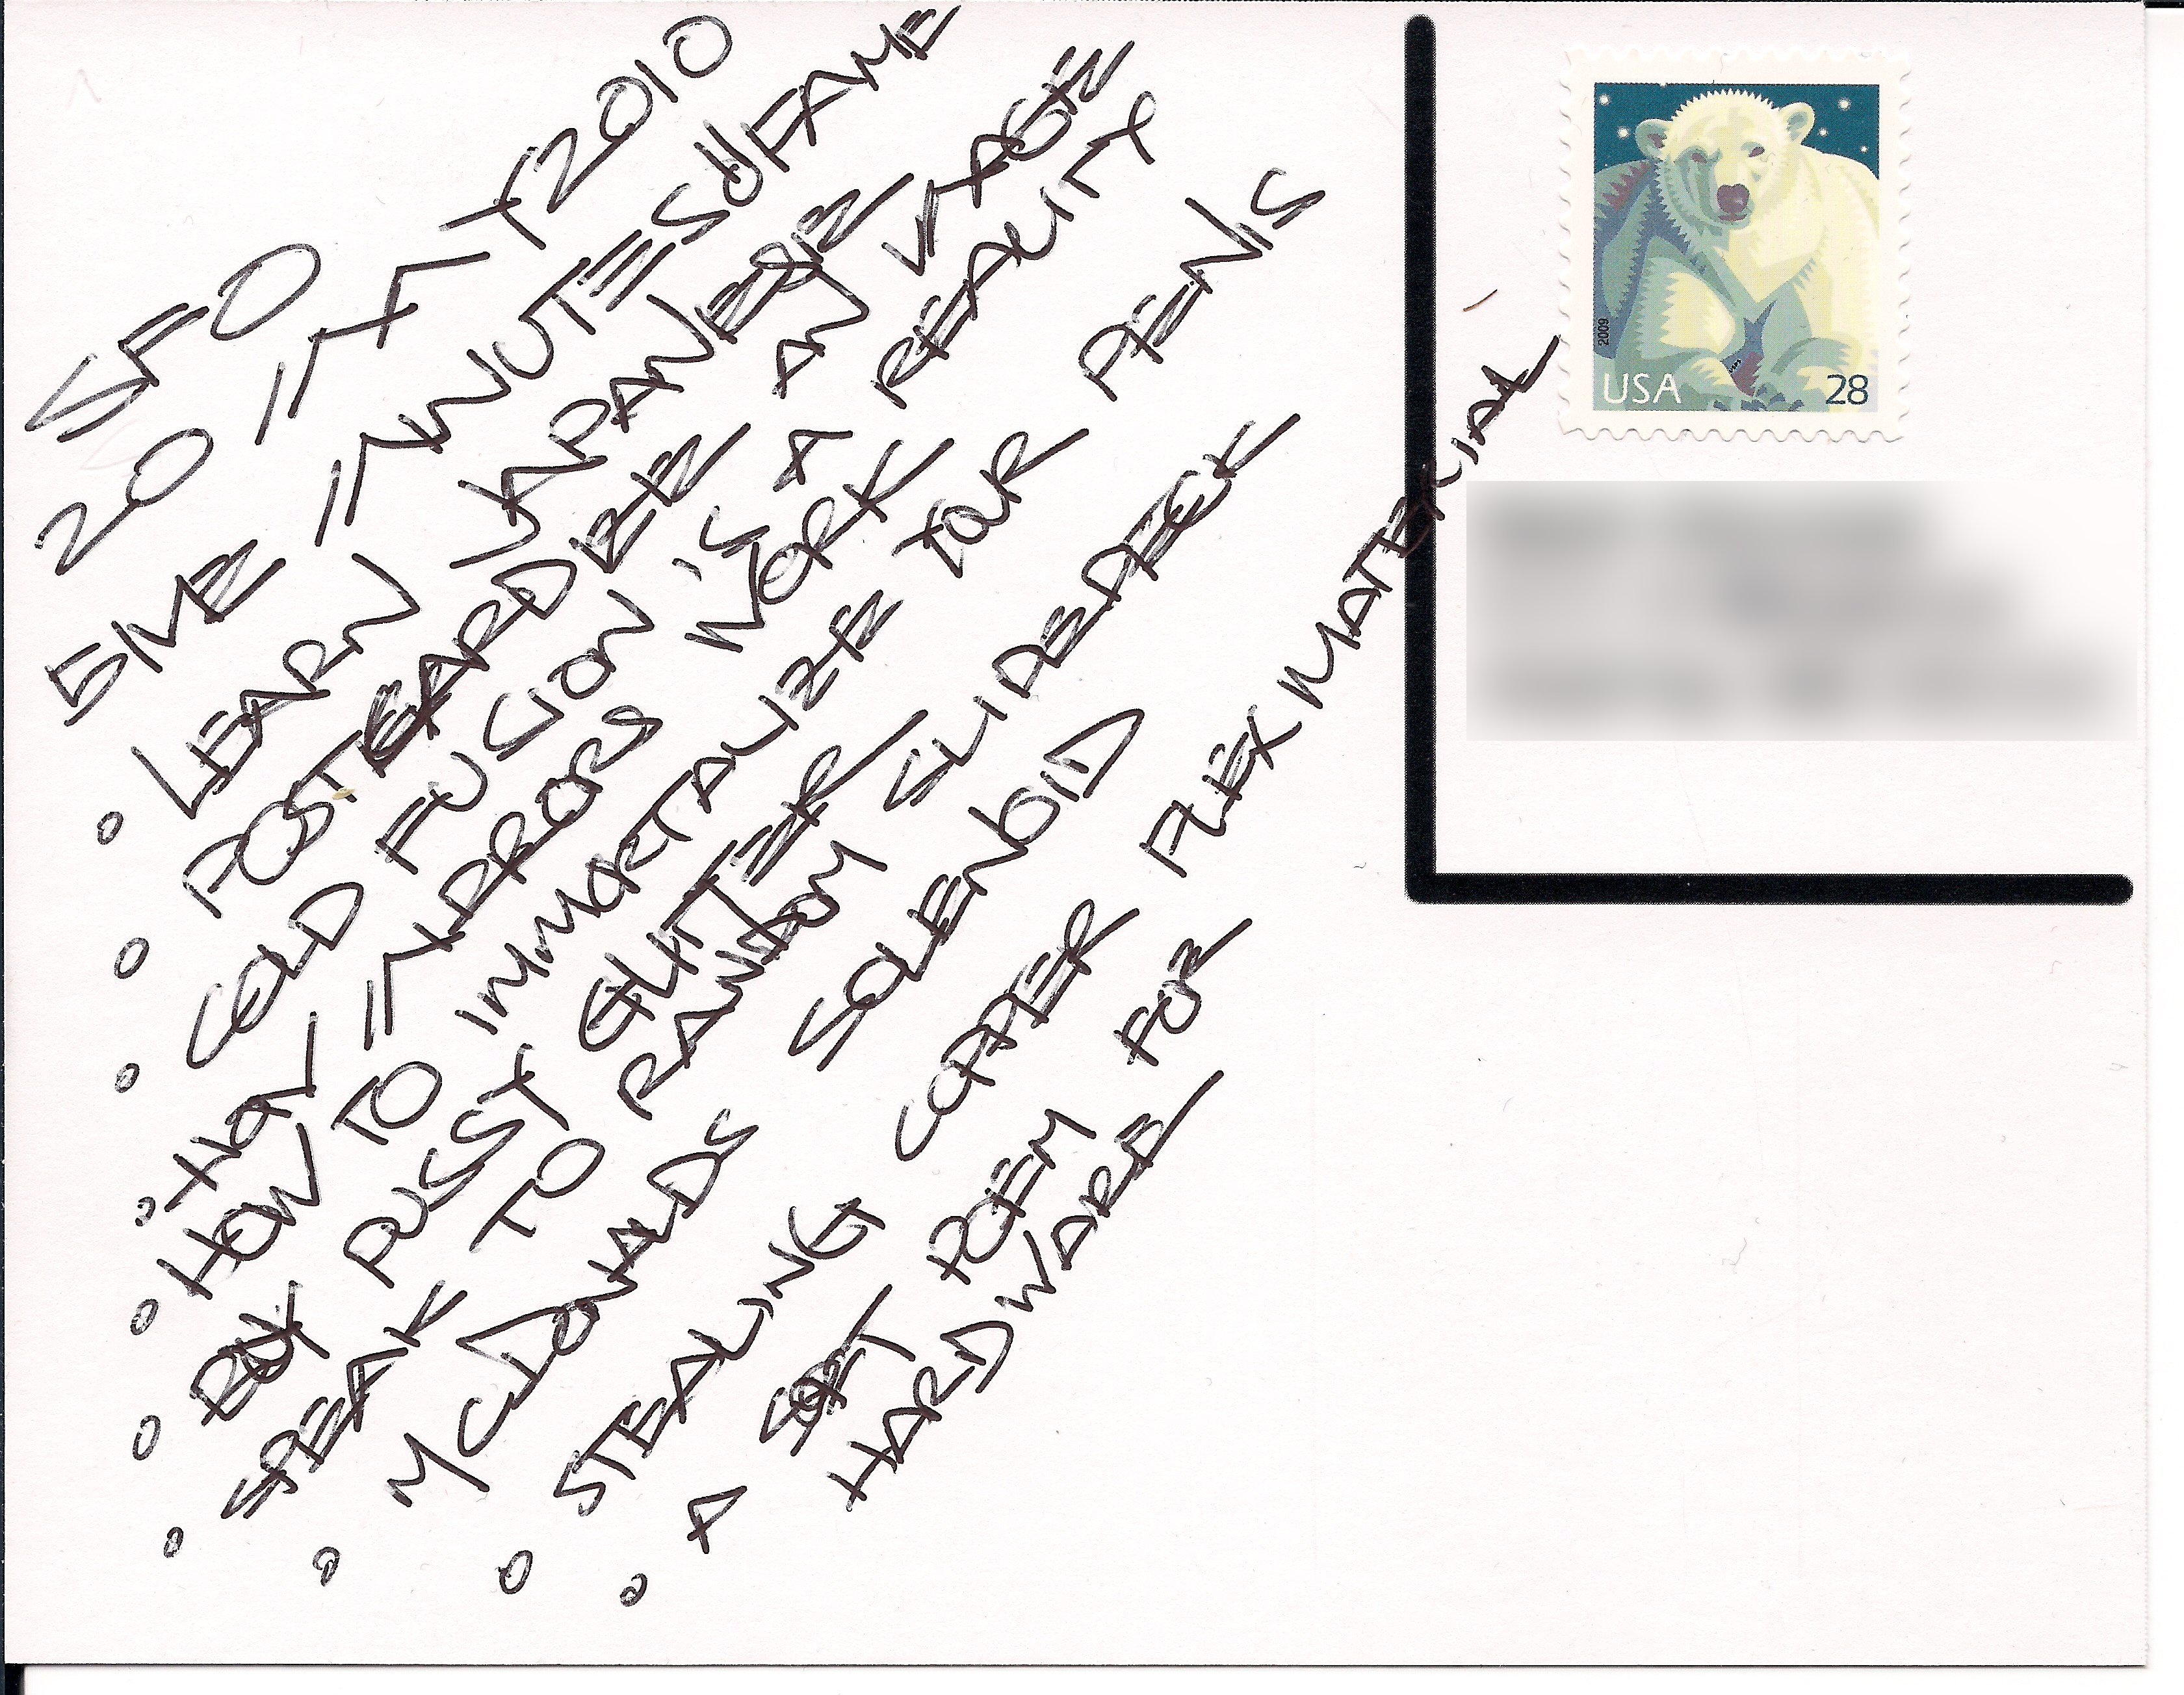 SFO
20 MAY 2010
5IVE MINUTES OF FAME
° LEARN JAPANESE
° POSTCARD AN
° COLD FUSION IS A REALITY
° HOW WORK
° HOW TO IMMORTALIZE YOUR PENIS
° BUY PUSSY GLITTER
° SPEAK TO RANDOM SLIDEDECK
° MCDONALDS SOLENOID
° STEALING COPPER FLEX MATERIAL
° A SOFT POEM FOR
HARDWARE
2009
USA 28